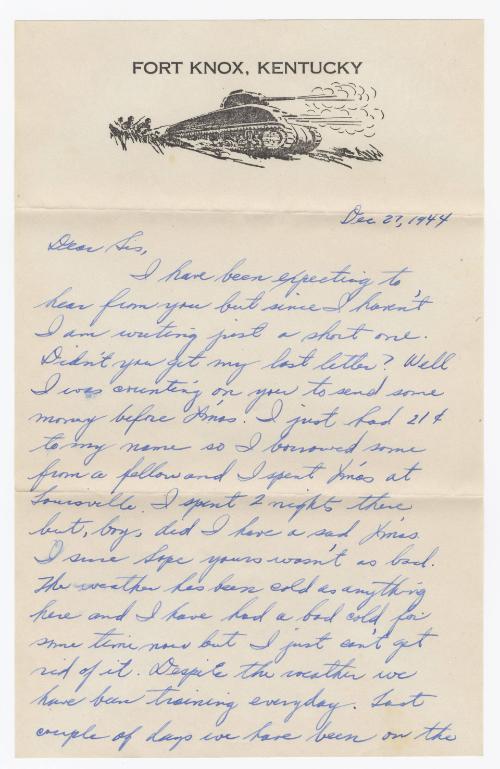 FORT KNOX, KENTUCKY
Dec. 27, 1944
Dear Sis,
I have been expecting to
hear from you but since I haven't
I am writing just a short one.
Didn't you get my last letter? Well
I was counting on you to send some
money before Xmas. I just had 21¢
to my name so I borrowed some
from a fellow and I spent Xmas at
Louisville. I spent 2 nights there
but, boy, did I have a sad Xmas.
I sure hope yours wasn't as bad.
The weather has been cold as anything
here and I have had a bad cold for
some time now but I just can't get
rid of it. Despite the weather we
have been training everyday. Last
couple of days we have been on the